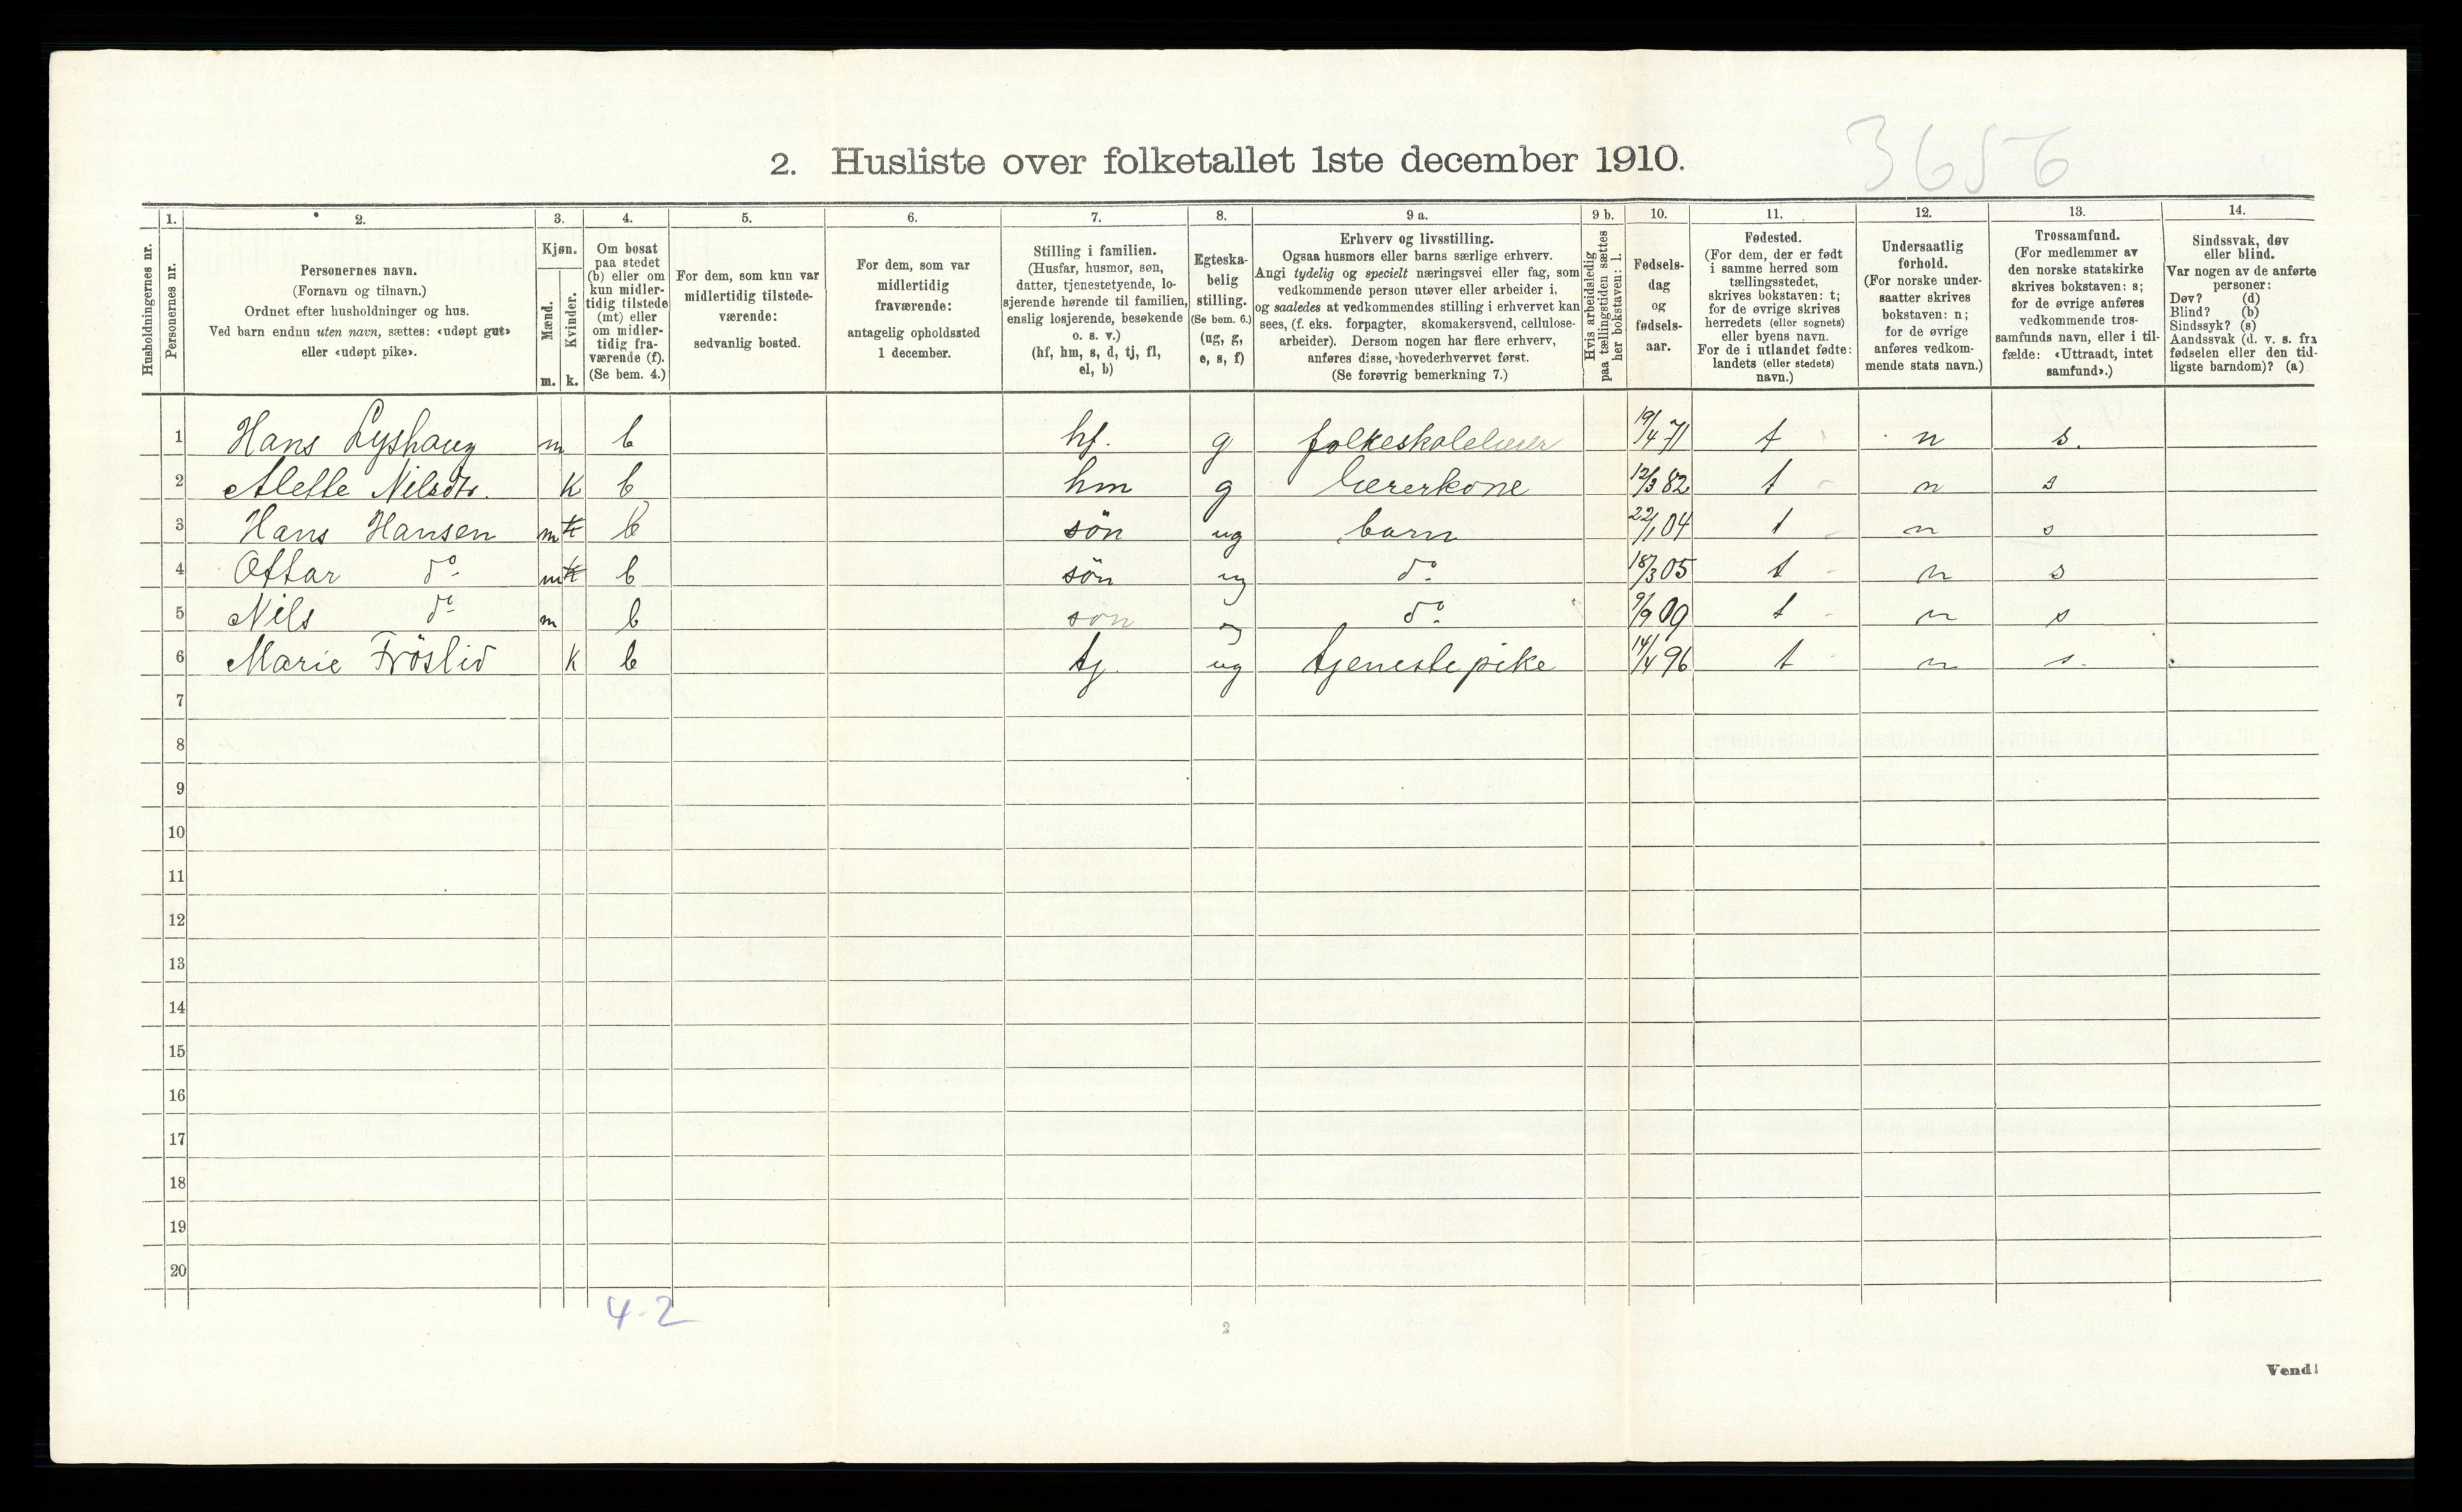 3656
2. Husliste over folketallet 1ste december 1910.
Husholdningernes nr.
1. Personernes nr.
2. Personernes navn.
(Fornavn og tilnavn.)
Ordnet efter husholdninger og hus.
Ved barn endnu uten navn, sættes: «udøpt gut»
eller «udøpt pike».
3. Kjøn.
Mænd. m.
Kvinder. k.
4. Om bosat
paa stedet
(b) eller om
kun midler-
tidig tilstede
(mt) eller
om midler-
tidig fra-
værende (f).
(Se bem. 4.)
5. For dem, som kun var
midlertidig tilstede-
værende:
sedvanlig bosted.
6. For dem, som var
midlertidig
fraværende:
antagelig opholdssted
1 december.
7. Stilling i familien.
(Husfar, husmor, søn,
datter, tjenestetyende, lo-
sjerende hørende til familien,
enslig losjerende, besøkende
o. s. v.)
(hf, hm, s, d, tj, fl,
el, b)
8. Egteska-
belig
stilling.
(Se bem. 6.)
(ug, g,
e, s, f)
9 a. Erhverv og livsstilling.
Ogsaa husmors eller barns særlige erhverv.
Angi tydelig og specielt næringsvei eller fag, som
vedkommende person utøver eller arbeider i,
og saaledes at vedkommendes stilling i erhvervet kan
sees, (f. eks. forpagter, skomakersvend, cellulose-
arbeider). Dersom nogen har flere erhverv,
anføres disse, hovederhvervet først.
(Se forøvrig bemerkning 7.)
9 b. Hvis arbeidsledig
paa tællingstiden sættes
her bokstaven: l.
10. Fødsels-
dag
og
fødsels-
aar.
11. Fødested.
(For dem, der er født
i samme herred som
tællingsstedet,
skrives bokstaven: t;
for de øvrige skrives
herredets (eller sognets)
eller byens navn.
For de i utlandet fødte:
landets (eller stedets)
navn.)
12. Undersaatlig
forhold.
(For norske under-
saatter skrives
bokstaven: n;
for de øvrige
anføres vedkom-
mende stats navn.)
13. Trossamfund.
(For medlemmer av
den norske statskirke
skrives bokstaven: s;
for de øvrige anføres
vedkommende tros-
samfunds navn, eller i til-
fælde: «Uttraadt, intet
samfund».)
14. Sindssvak, døv
eller blind.
Var nogen av de anførte
personer:
Døv? (d)
Blind? (b)
Sindssyk? (s)
Aandssvak (d. v. s. fra
fødselen eller den tid-
ligste barndom)? (a)
1 Hans Lyshaug m b hf. g folkeskolelærer 19/4 71 t n s.
2 Alette Nilsdtr. K b hm g lærerkone 12/3 82 t n s
3 Hans Hansen m k b sön ug barn 22/1 04 t n s
4 Ottar do m k b sön ug do 18/3 05 t n s
5 Nils do m b sön ug do 9/9 09 t n s
6 Marie Fröslid K b tj. ug tjenestepike 14/4 96 t n s.
7
8
9
10
11
12
13
14
15
16
17
18
19
20
4-2
2
Vend!